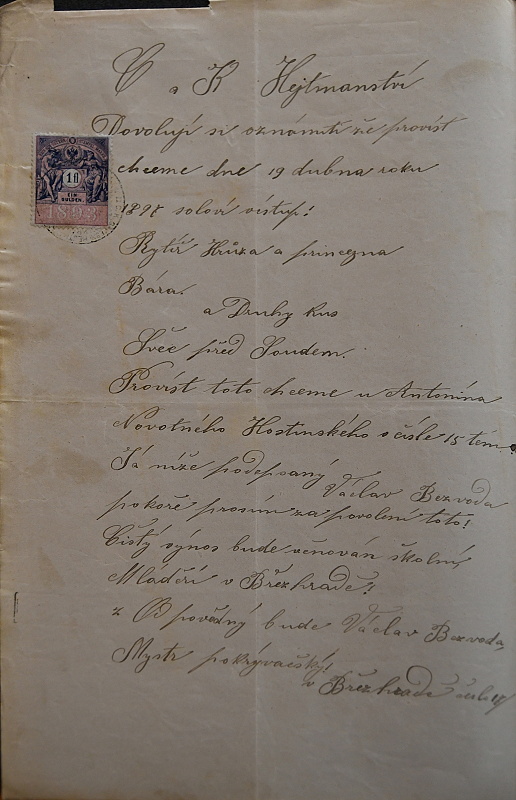 C a K Hejtmanství
Dovolují si oznámiti že províst
chceme dne 19 dubna roku
1898 solovi výstup!
Rytíř Hrůza a princezna
Bára.
a Druhy kus
Švec před Soudem.
Províst toto chceme u Antonína
Novotného Hostinského v čísle 15 tém
Já níže podepsaný
Václav Bezvoda
pokoře prosím za povolení toto!
Čistý výnos bude věnován školní
Mláděží v Březhradě!
z Od povědný bude Václav Bezvoda,
Mystr pokrývačský!
v Březhradě
10
EIN
GULDEN
1893